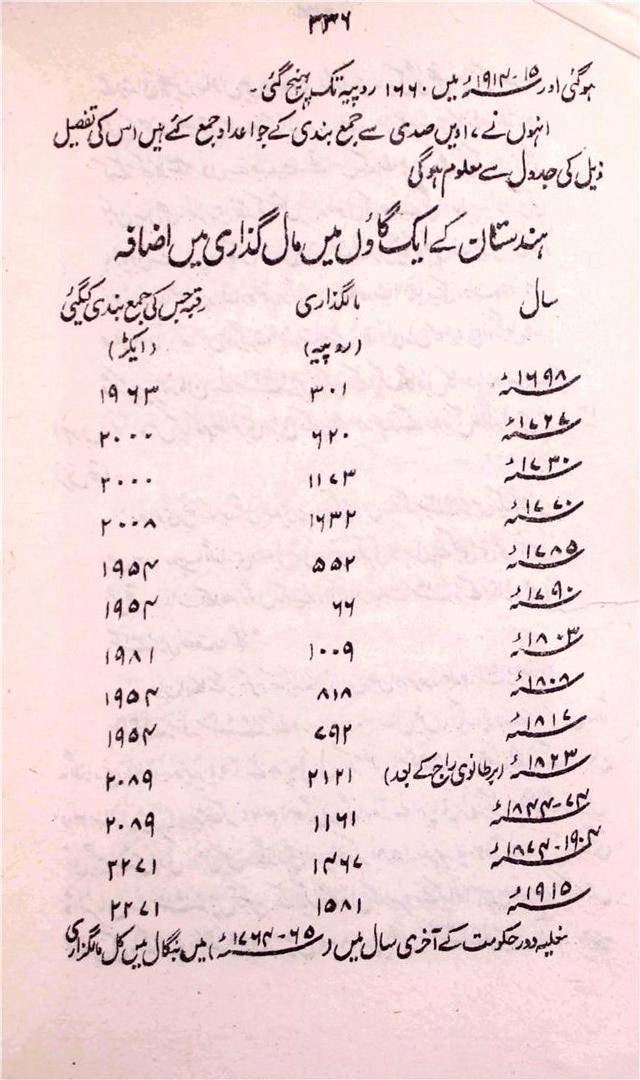 ۳۳۶
ہوگئی اور ۱۵-۱۹۱۴ء میں ۱۶۶۰ روپیہ تک پہنچ گئی۔
انہوں نے ۱۷ ویں صدی سے جمع بندی کے جو اعداد جمع کئے ہیں اس کی تفصیل
ذیل کی جدول سے معلوم ہوگی
ہندستان کے ایک گاؤں میں مال گذاری میں اضافہ
سال مالگذاری رقبہ جس کی جمع بندی کیگئی
(روپیہ) (ایکڑ)
۱۶۹۸ء ۳۰۱ ۱۹۶۳
۱۷۲۷ء ۶۲۰ ۲۰۰۰
۱۷۳۰ء ۱۱۷۳ ۲۰۰۰
۱۷۷۰ء ۱۶۳۲ ۲۰۰۸
۱۷۸۵ء ۵۵۲ ۱۹۵۴
۱۷۹۰ء ۶۶ ۱۹۵۴
۱۸۰۳ء ۱۰۰۹ ۱۹۸۱
۱۸۰۸ء ۸۱۸ ۱۹۵۴
۱۸۱۷ء ۷۹۲ ۱۹۵۴
۱۸۲۳ء (برطانوی راج کے بعد) ۲۱۲۱ ۲۰۸۹
۷۴-۱۸۴۴ء ۱۱۶۱ ۲۰۸۹
۱۹۰۴-۱۸۷۴ء ۱۴۶۷ ۲۲۷۱
۱۹۱۵ء ۱۵۸۱ ۲۲۷۱
مغلیہ دور حکومت کے آخری سال میں (۶۵-۱۷۶۴ء) میں بنگال میں کل مالگذاری